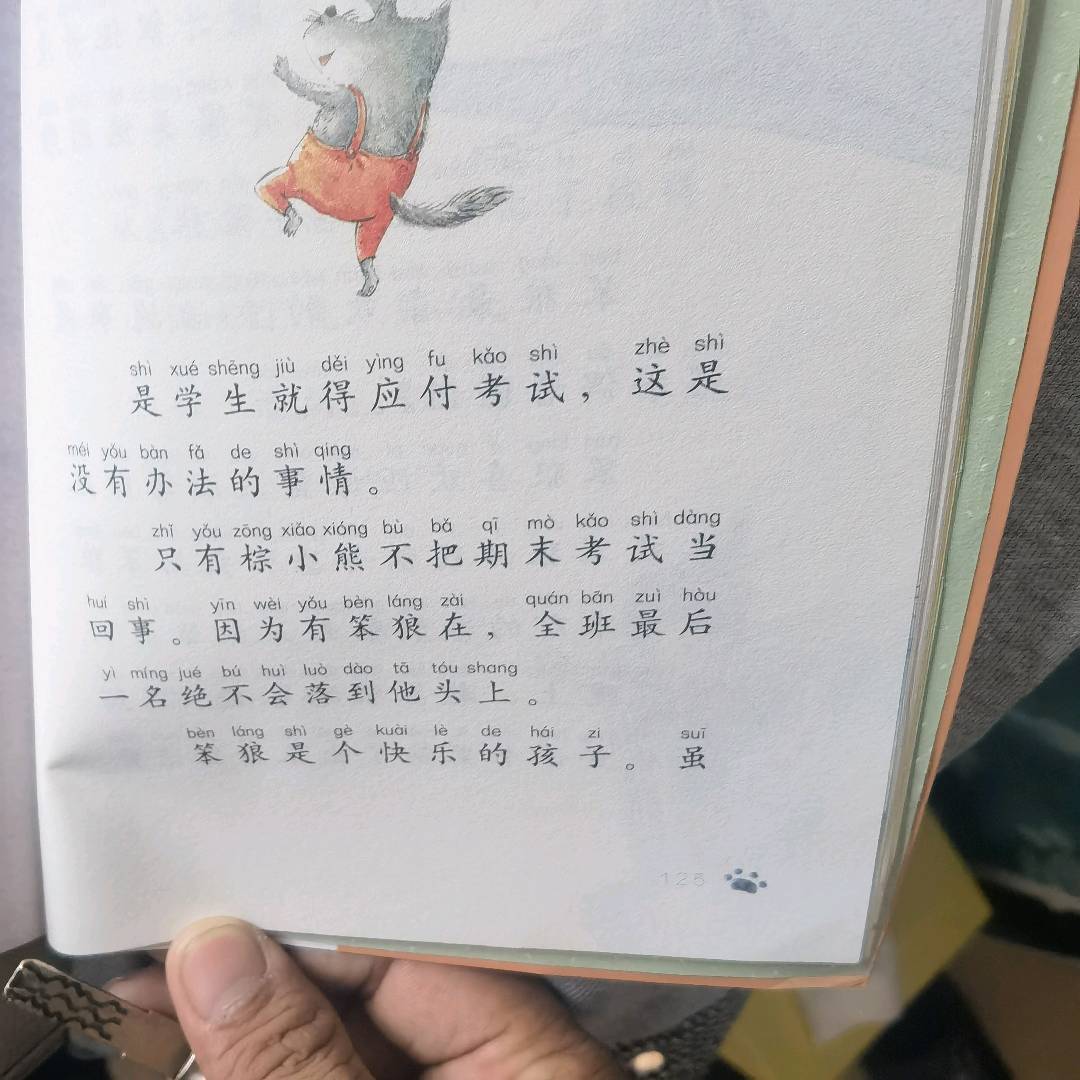 shì xué shēng jiù děi yìng fu kǎo shì zhè shì
是学生就得应付考试，这是
méi yǒu bàn fǎ de shì qing
没有办法的事情。
zhǐ yǒu zōng xiǎo xióng bù bǎ qī mò kǎo shì dàng
只有棕小熊不把期末考试当
huí shì yīn wèi yǒu bèn láng zài quán bān zuì hòu
回事。因为有笨狼在，全班最后
yì míng jué bú huì luò dào tā tóu shang
一名绝不会落到他头上。
bèn láng shì gè kuài lè de hái zi suī
笨狼是个快乐的孩子。虽
125